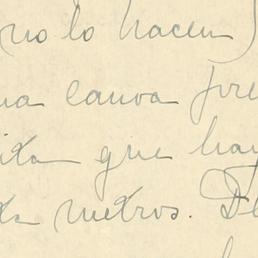 no lo hacen)
na canoa pre
ita que hay
ta metros. De